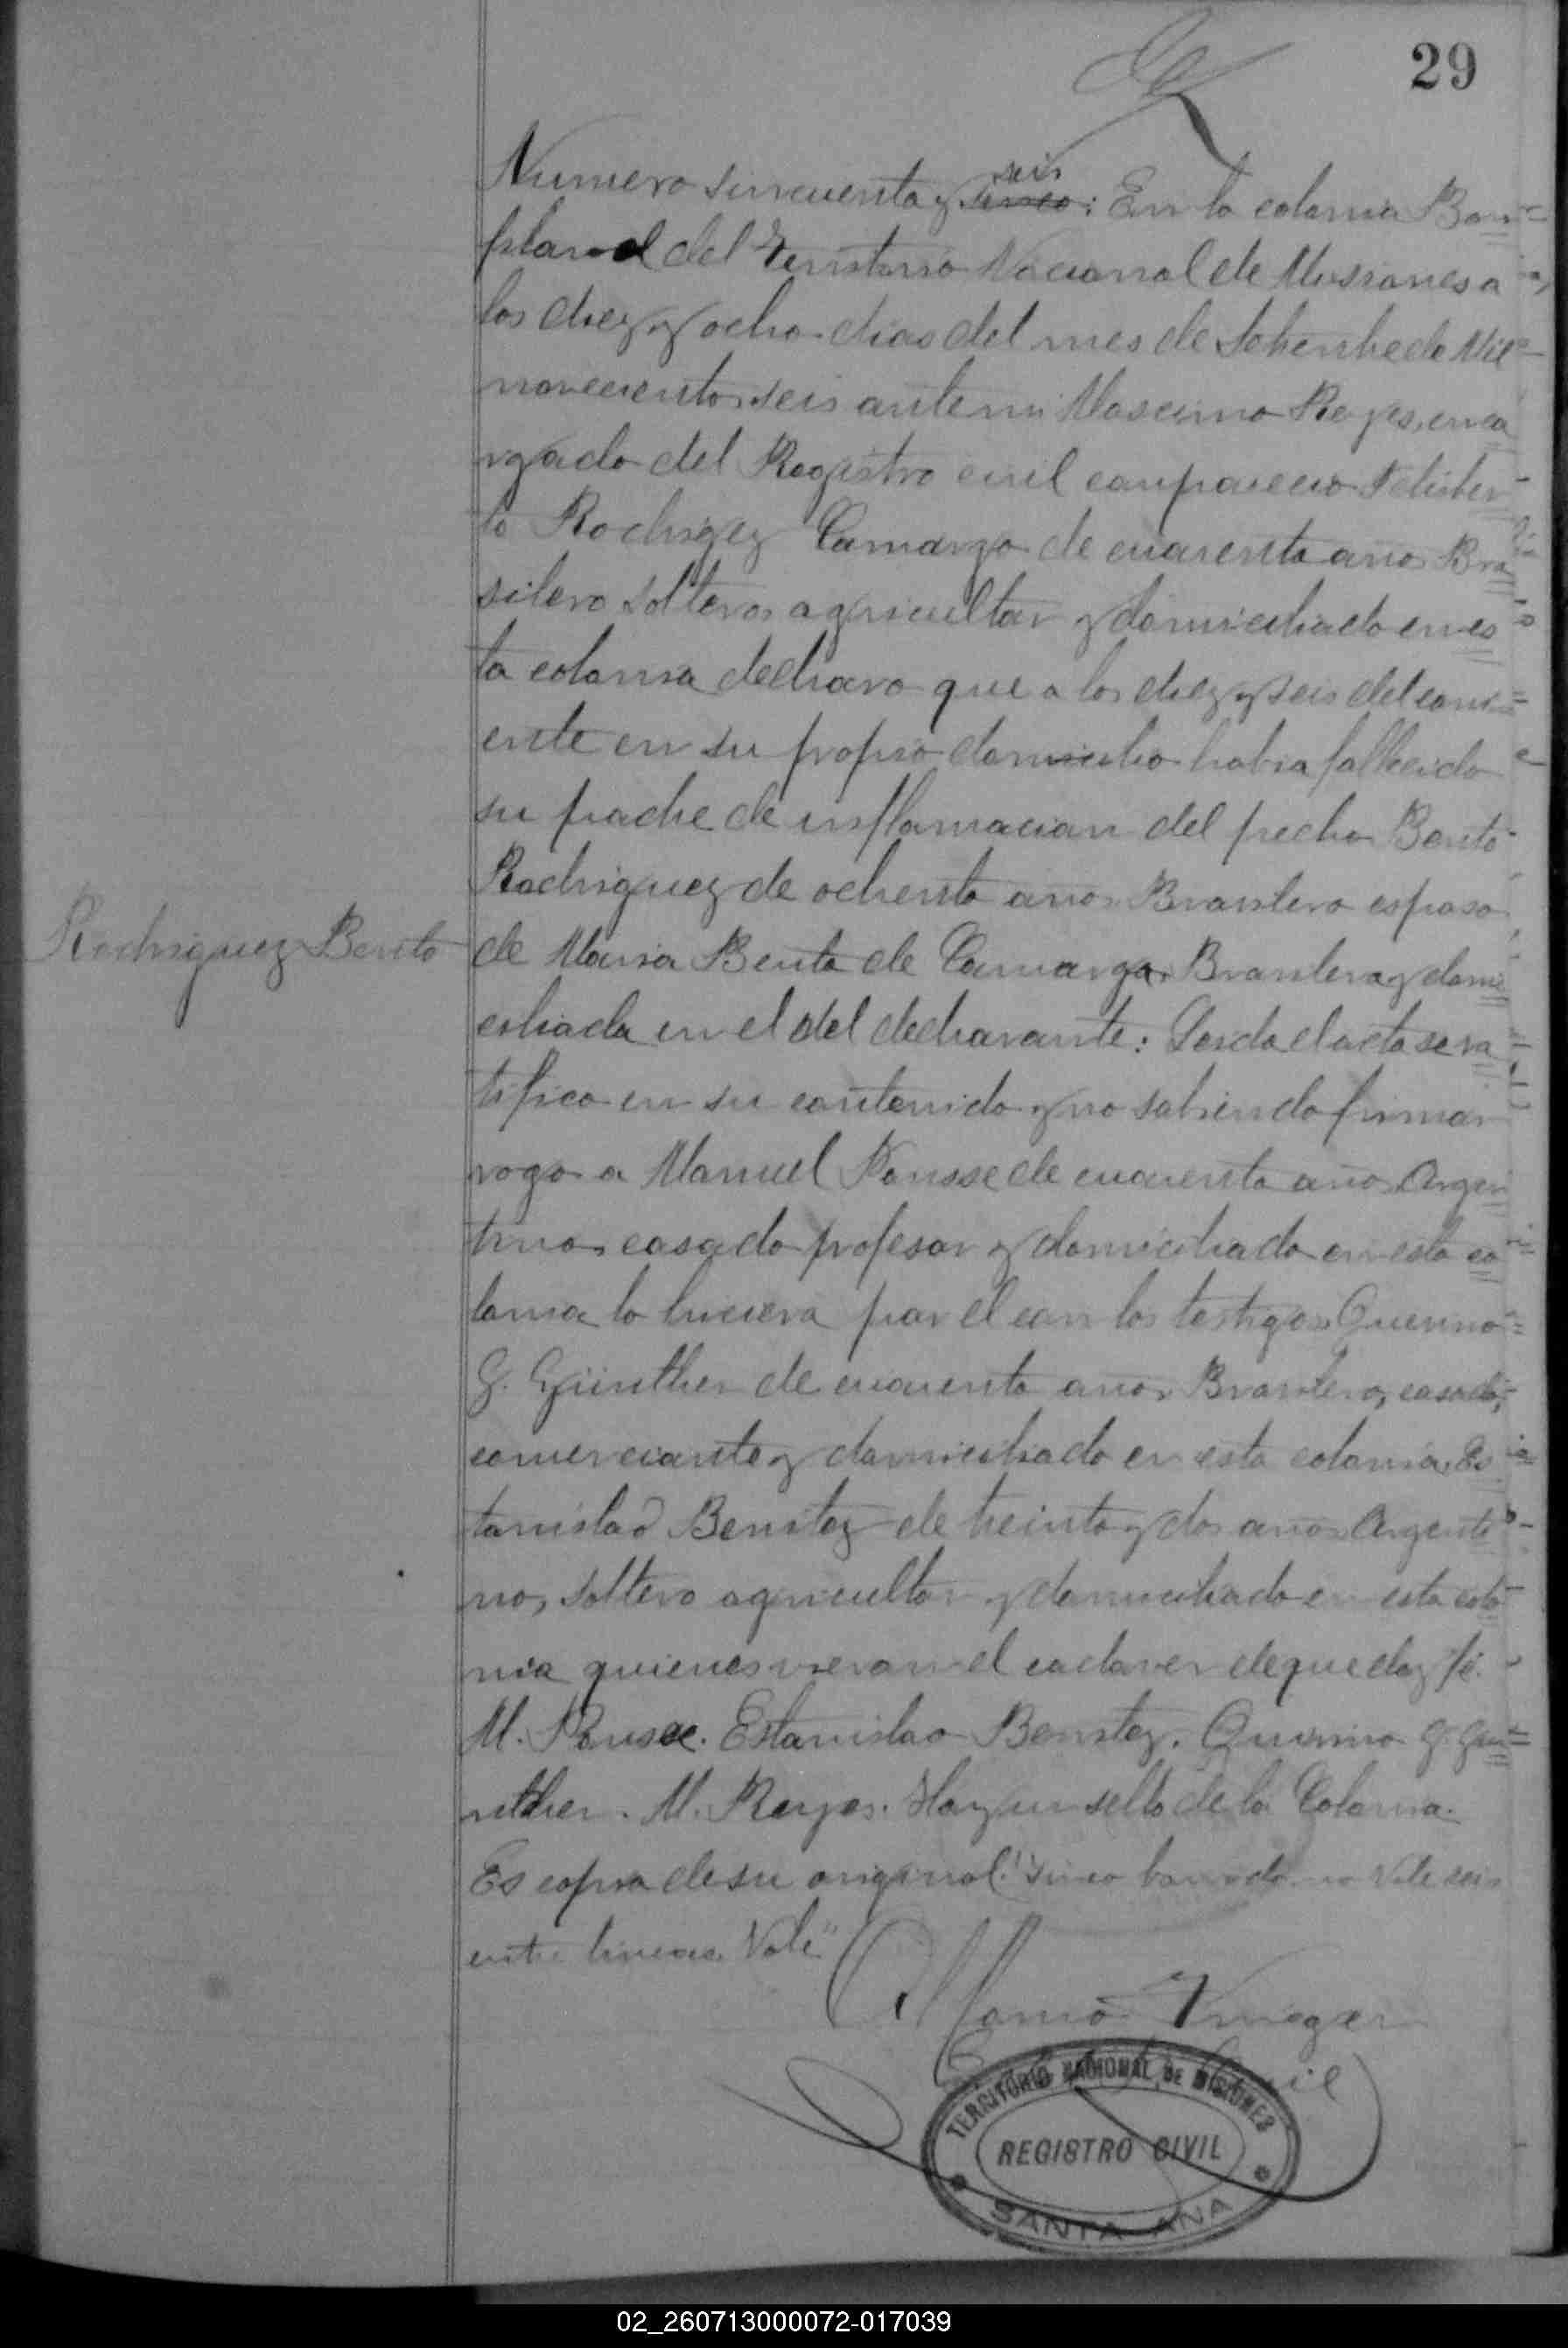 29
Numero sincuenta y sinco seis: En la colonia Bon=
pland del Territorio Nacional de Misiones a
los diez y ocho dias del mes de Setienbre de Mil
novecientos seis ante mi Maseimo Reyes, enca
rgado del Registro civil conparecio Felisber
to Rodrigez Camargo de cuarenta años Bra
silero soltero, agricultor y domiciliado en es
ta colonia declaro que a los diez y seis del corri=
ente en su propio domicilio habia fallecido
su padre de inflamacion del pecho Bento
Rodriguez de ochenta años Brasilero esposo
Rodriguez Bento
de Maria Benta de Camargo, Brasilera y domi
ciliada en el del declarante: Leida el acta se ra
tifico en su contenido y no sabiendo firmar
rogo a Manuel de cuarenta años Argen
tino, casado profesor y domiciliado en esta co
lonia lo hiciera por el con los testigos Quirino
G. Günther de cuarenta años Brasilero, casado,
comerciante y domiciliado en esta colonia, Es
tanislao Benitez de treinta y dos años Argenti
no, soltero agricultor y domiciliado en esta colo
nia quienes vieron el cadaver de que doy fé.
M. Estanislao Benitez. Quirino G. Gu=
nther. M. Reyes. Hay un sello de la Colonia.
Es copia de su original. "sinco borrado no Vale seis
entre lineas Vale"
TERRITORIO NACIONAL DE MISIONES
REGISTRO CIVIL
SANTA ANA
02_260713000072-017039